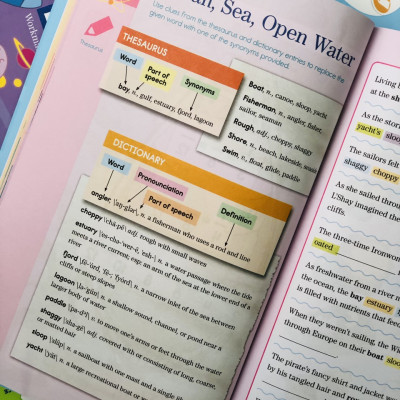 an, Sea, Open Water
Use clues from the thesaurus and dictionary entries to replace the
given word with one of the synonyms provided.
Thesaurus
THESAURUS
Word
Part of
speech
Synonyms
bay, n., gulf, estuary, fjord, lagoon
Boat, n., canoe, sloop, yacht
Fisherman, n., angler, fisher,
sailor, seaman
Rough, adj., choppy, shaggy
Shore, n., beach, lakeside,
Swim, v., float, glide, paddle
DICTIONARY
Word
Pronounciation
Part of speech
Definition
angler, n. a fisherman who uses a rod and line
choppy adj. rough with small waves
estuary n. a water passage where the tide
meets a river current; esp: an arm of the sea at the lower end of a
river
fjord n. a narrow inlet of the sea between
cliffs or steep slopes
lagoon n. a shallow sound, channel, or pond near a
larger body of water
paddle v. to move one's arms or feet through the water
shaggy adj. covered with or consisting of long, coarse,
or matted hair
sloop n. a sailboat with one mast and a single jib
yacht n. a large recreational boat or
Living b
at the sh
As the stor
yacht's sloo
The sailors felt
shaggy choppy
As she sailed throu
L'Shay imagined the
cliffs.
The three-time Ironwon
oated
As freshwater from a river n
the ocean, the bay estuary
is filled with nutrients that fee
When they weren't sailing, the W
through Europe on their boat sloo
The pirate's fancy shirt and jacket w
by his tangled hair and rou